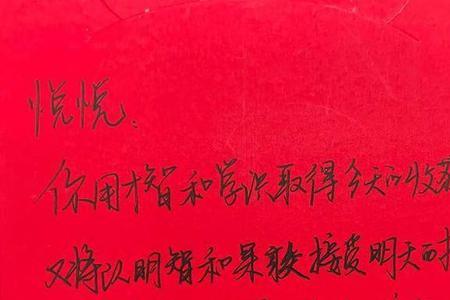 悦悦、
你用才智和学识取得今天的收获
又将以明智和果敢接受明天的挑